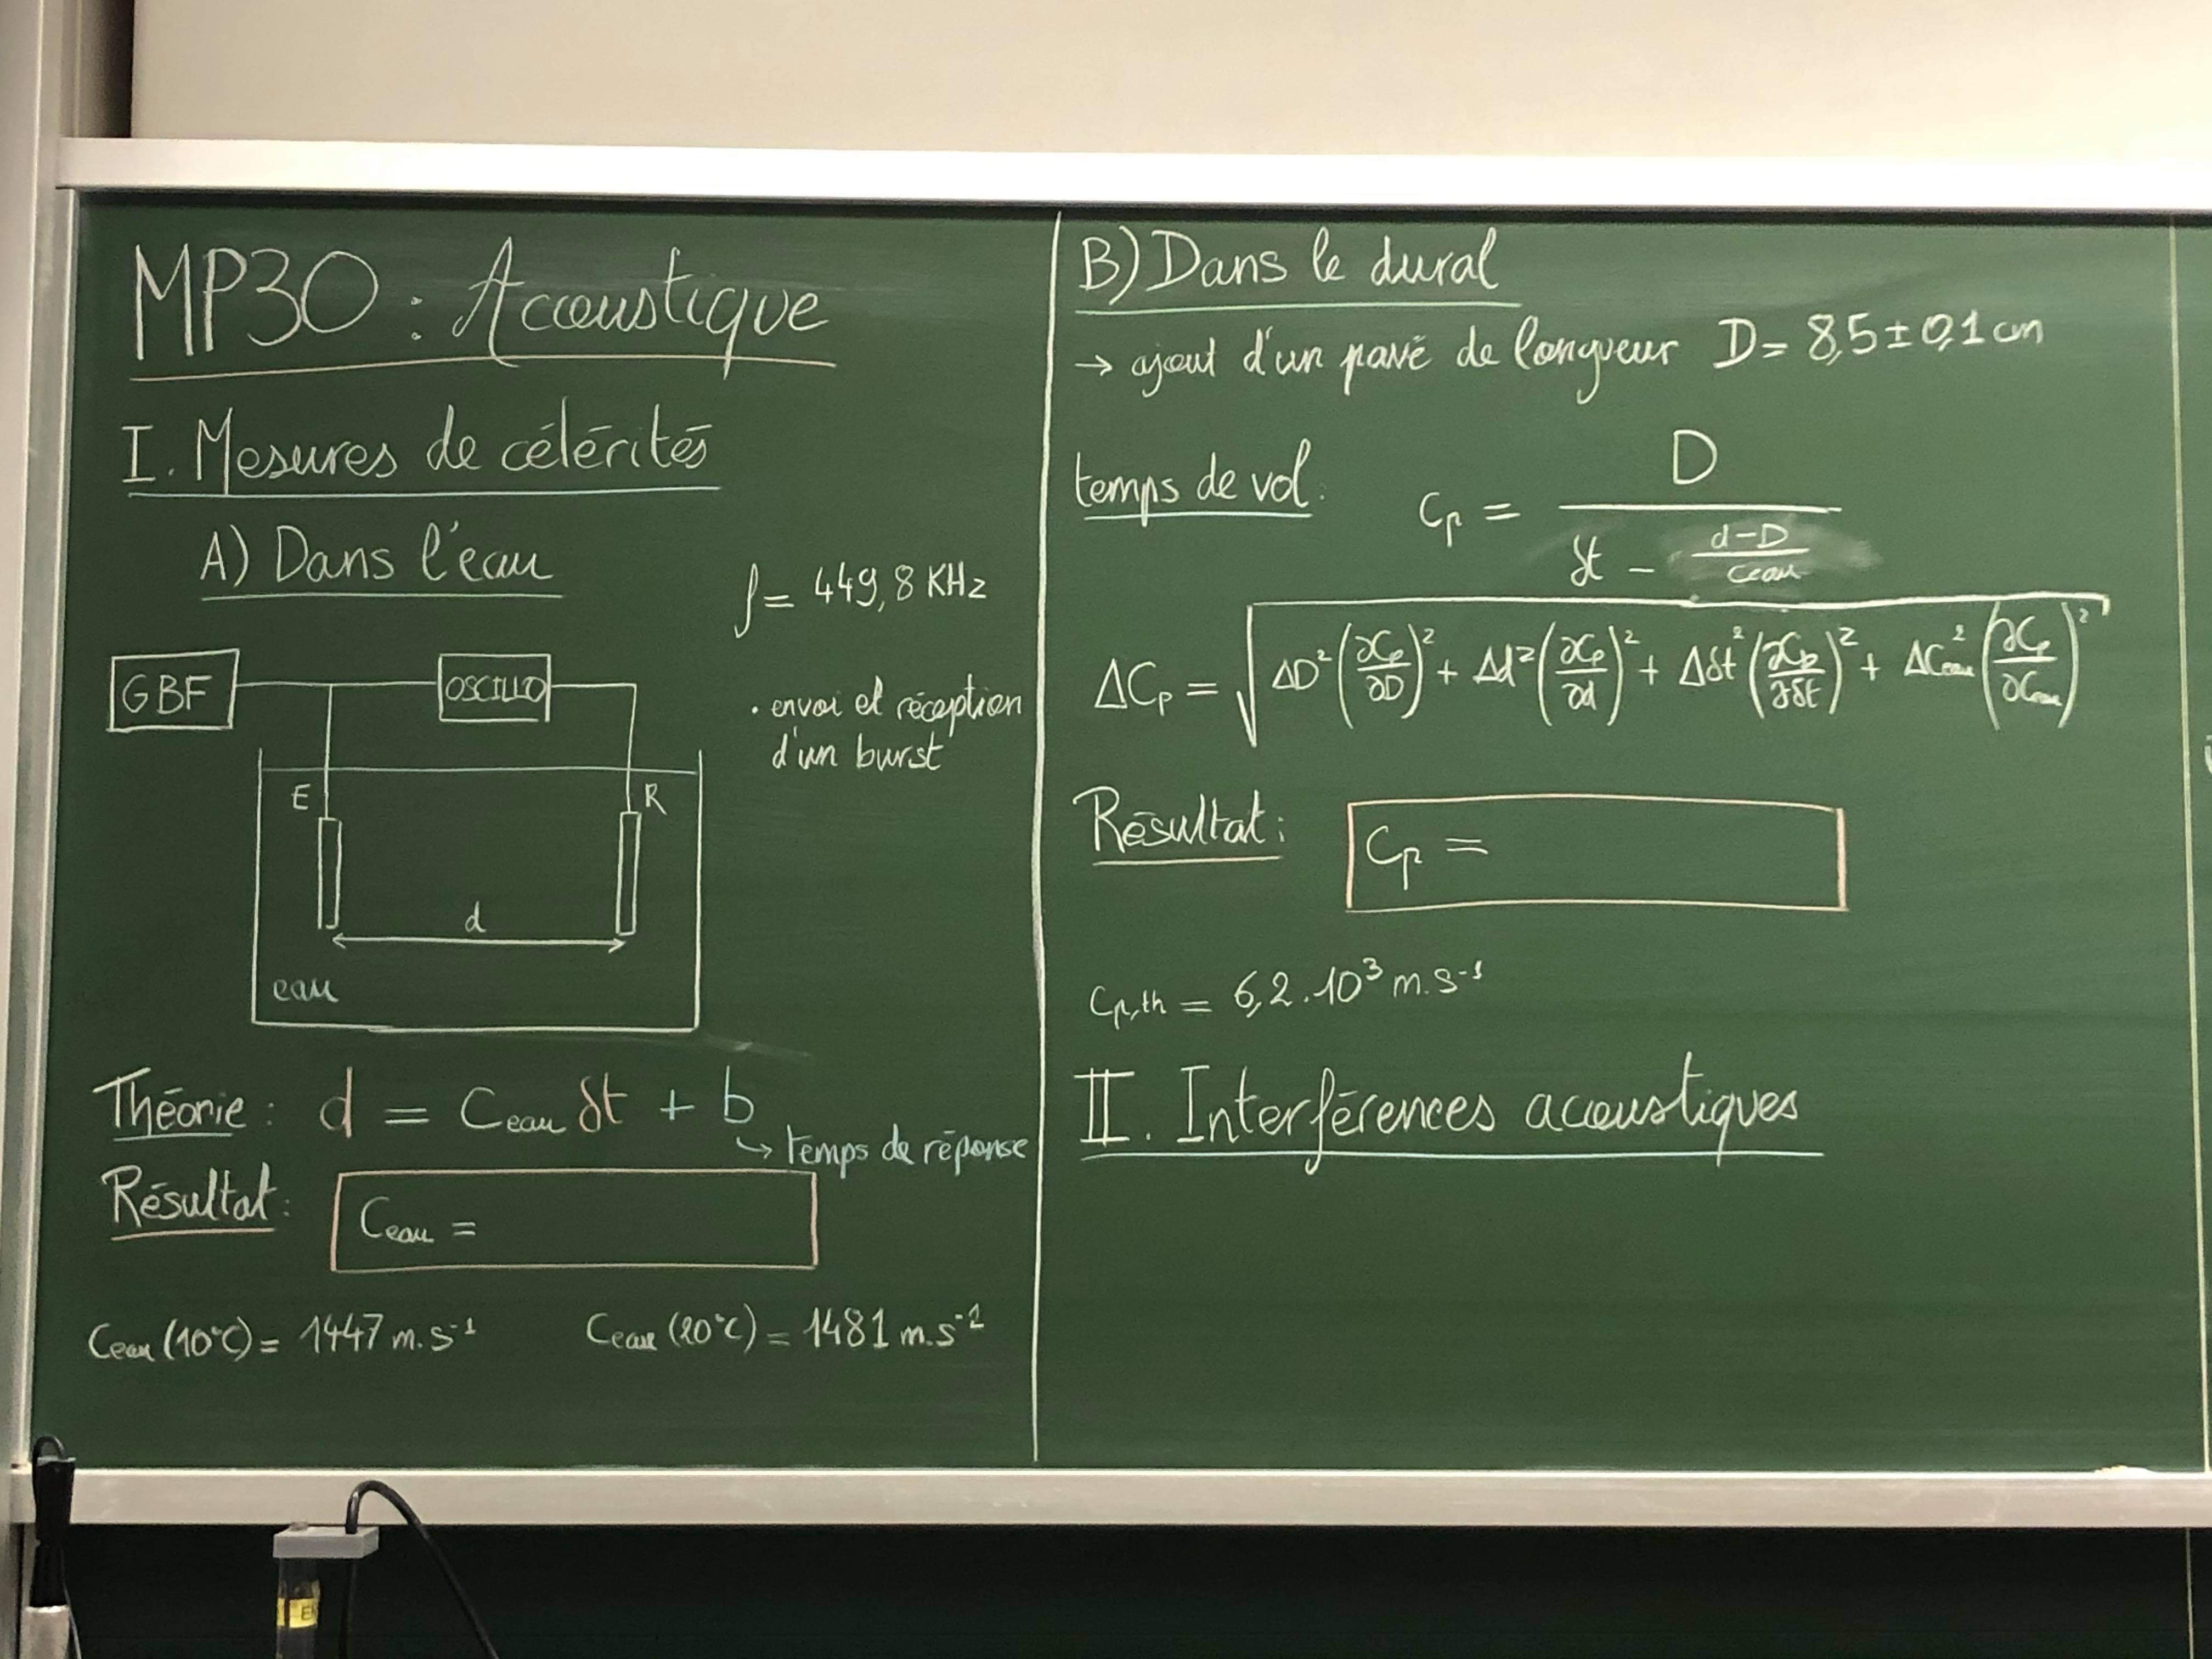 MP30 : Acoustique
I. Mesures de célérités
A) Dans l'eau
f = 449,8 KHz
GBF
OSCILLO
. envoi et réception
d'un burst
E
R
d
eau
Théorie : d = Ceau δt + b
↳ temps de réponse
Résultat :
Ceau =
Ceau (10°C) = 1447 m.s⁻¹
Ceau (20°C) = 1481 m.s⁻¹
B) Dans le dural
→ ajout d'un pavé de longueur D = 8,5 ± 0,1 cm
temps de vol : Cp = D / (δt - (d-D)/Ceau)
ΔCp = √(ΔD² (∂Cp/∂D)² + Δd² (∂Cp/∂d)² + Δδt² (∂Cp/∂δt)² + ΔCeau² (∂Cp/∂Ceau)²)
Résultat :
Cp =
Cp,th = 6,2.10³ m.s⁻¹
II. Interférences acoustiques